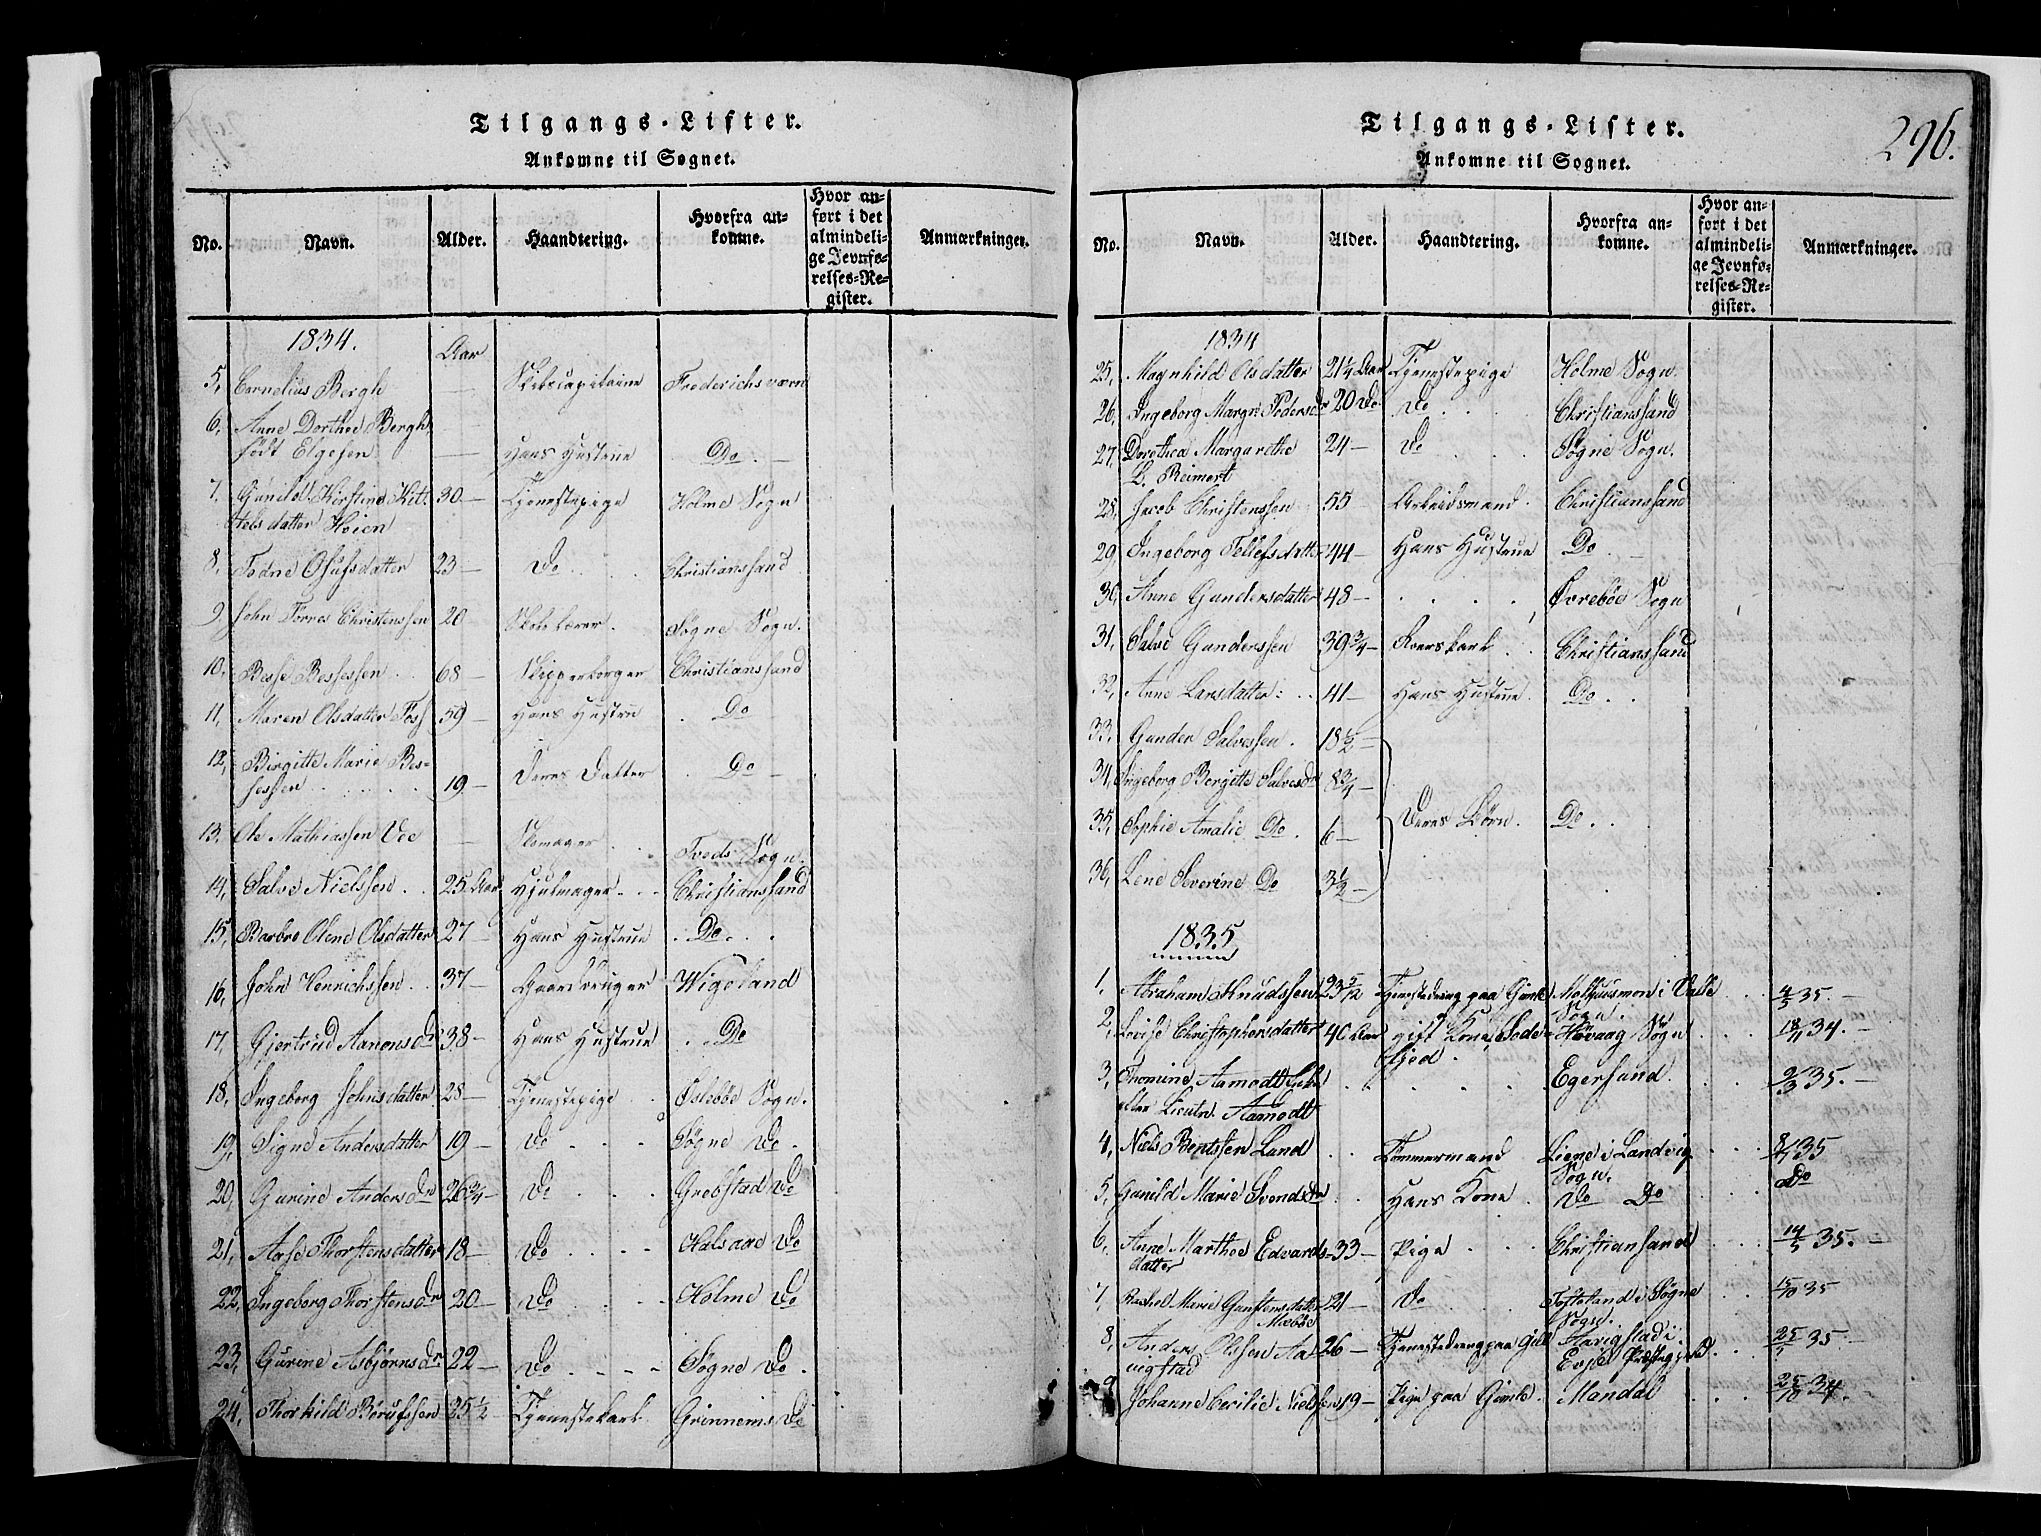 Tilgangs-Lister.
Ankomne til Sognet.
No. Navn. Alder. Haandtering. Hvorfra ankomne. Hvor anført i det almindelige Jevnførelses-Register. Anmærkninger.
1834. Aar
5, Cornelius Bergh — Skibscapitaine Frederichsværn
6, Anne Dorthee Bergh —
født Elgesen — Hans Hustrue Do. —
7, Gunild Kirstine Kit- 30— Tjenestepige Holme Sogn
telsdatter Høien
8, Todne Osufsdatter 23— Do. . . Christianssand
9, John Torres Christenssen 20 Skolelærer. Søgne Sogn.
10. Besse Bessessen . . 68— Skipperborger Christianssand
11, Maren Olsdatter Foss 59— Hans Hustrue . Do
12, Birgitte Marie Bes-
sessen . . . . 19— Deres Datter . Do —
13. Ole Mathiassen Vee — Skomager . . Tveds Sogn.
14, Salve Nielssen . . 25 Aar Hjulmager . . . Christianssand
15, Barbro Olene Olsdatter 27— Hans Hustrue . Do. . .
16, John Henrichssen . . 37— Gaardbruger Wigeland
17, Gjertrud Aanonsdr 38— Hans Hustrue . Do
18, Ingeborg Johnsdatter 28— Tjenestepige . . Øslebøe Sogn.
19, Signe Andersdatter 19— Do . . . Søgne Do.
20, Gurine Andersdr 26 3/4— Do . . . Grebstad Do
21, Aase Thorstensdatter 18— Do . . . . Halsaae Do
22, Ingeborg Thorstensdr 20— Do . . . Holme Do
23, Gurine Asbjørnsdr 22— Do . . . Søgne Do.
24, Thorkild Børufssen 25 1/2 Tjenestekarl Grinnems Do
Tilgangs-Lister.
296.
Ankomne til Sognet.
No. Navn. Alder. Haandtering. Hvorfra ankomne. Hvor anført i det almindelige Jevnførelses-Register. Anmærkninger.
1834
25, Magnhild Olsdatter 21 1/4 Aar Tjenestepige Holme Sogn.
26, Ingeborg Margr. Pedersdr 20 Do Do . . . Christianssand
27, Dorothea Margarethe 24— Do . . . Søgne Sogn.
L. Reimert
28, Jacob Christenssen 55— Arbeidsmand . Christianssand
29, Ingeborg Tellefsdatter 44— Hans Hustrue Do . —
30, Anne Gundersdatter 48— . . . . Øvrebøe Sogn
31, Salve Gunderssen 39 3/4— . . Christianssand
32, Anne Larsdatter . . 41— Hans Hustrue . Do . .
33. Gunder Salvessen . 18 1/2—
34, Ingeborg Bergitte Salvesdr 8 3/4—
35, Sophie Amalie Do . 6— Deres Børn . Do . .
36, Lene Severine Do 3 1/2—
1835
1, Abraham Knudssen 23 5/12 Tjenestedreng paa Gimle i Valle . . . 4/5 35. —
Sogn.
2, Lovise Christophersdatter 40 Aar gift Kone, Høvaag Sogn . . . 18/11 34. —
3, Thomine Aamodt . . . Egersund. . . 2/3 35. —
eller Lieutn. Aamodt
4, Niels Bentssen Land . . Tømmermand i Landvig . . . 35
Sogn.
5, Gunild Marie Svendsdr . . Hans Kone . Do Do . . . Do
6, Anne Marthee Edvards- 33— Pige . . . Christianssand . . . 14/5 35. —
datter
7, Rachel Marie Gunstensdatter 21— Do . . . Tofteland i Søgne . . . 15/10 35
Mæbøe Sogn.
8, Anders Olsen Aa- 26— Tjenestedreng paa Aavigstad i . . . 35
vigstad Evje Præstegjeld
9 Johanne Cecilie Nielssen 19— Pige paa Gimle . Mandal . . . 25/10 34.